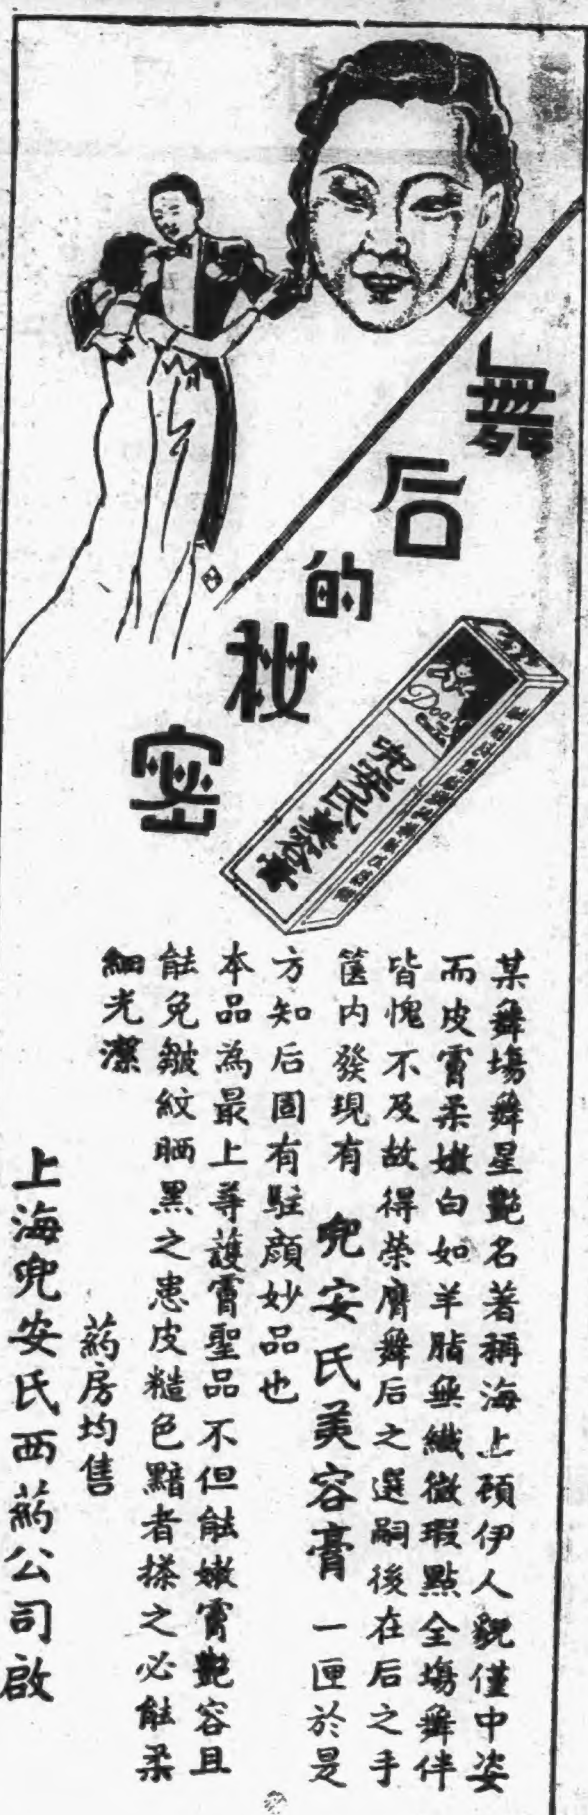 舞后的秘密
Doan
兜安氏美容膏
某舞塲舞星艶名著稱海上顧伊人貌僅中姿
而皮膚柔嫩白如羊脂無纖微瑕點全塲舞伴
皆愧不及故得榮膺舞后之選嗣後在后之手
篋内發現有 兜安氏美容膏 一匣於是
方知后固有駐顔妙品也
本品為最上等護膚聖品不但能嫩膚艶容且
能免皺紋晒黑之患皮糙色黯者搽之必能柔
細光潔
葯房均售
上海兜安氏西葯公司啟